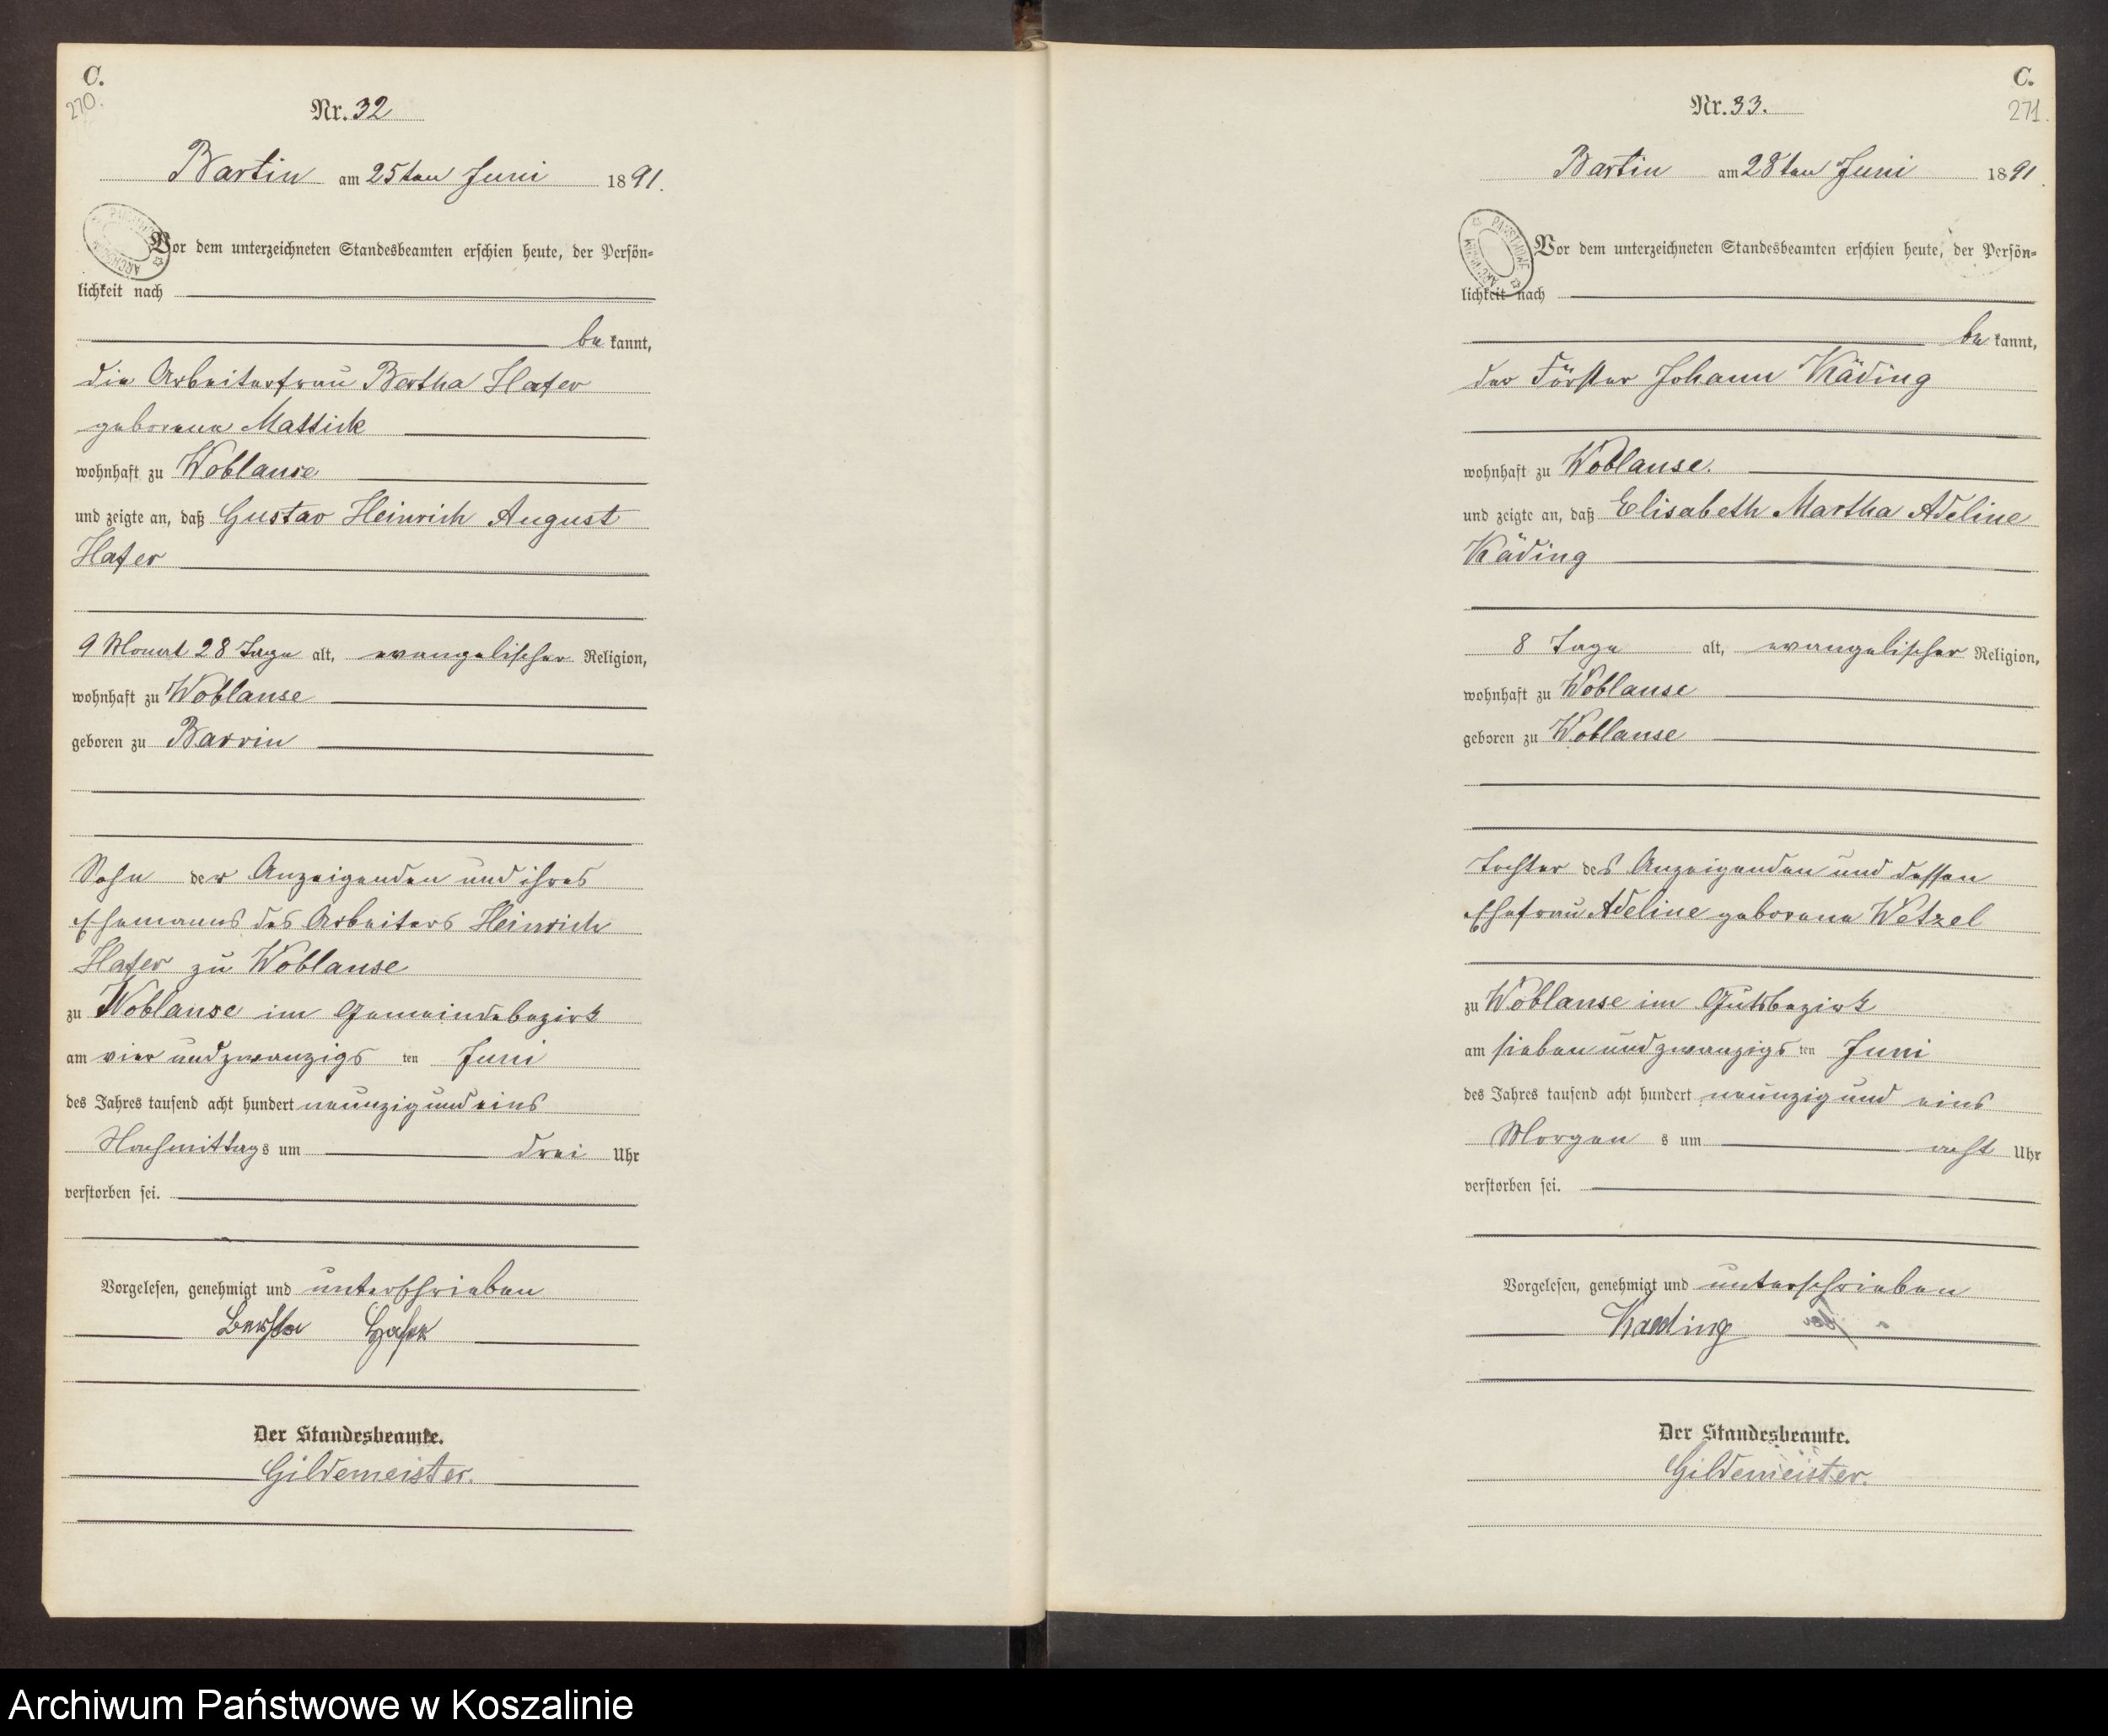 C.
270.
Nr. 32
Bartin am 25ten Juni 1891.
Vor dem unterzeichneten Standesbeamten erschien heute, der Persön-
lichkeit nach
bekannt,
die Arbeiterfrau Bertha Hafer
geborene Mattick
wohnhaft zu Woblanse
und zeigte an, daß Gustav Heinrich August
Hafer
9 Monat 28 Tage alt, evangelischer Religion,
wohnhaft zu Woblanse
geboren zu Barvin
Sohn der Anzeigenden und ihres
Ehemanns des Arbeiters Heinrich
Hafer zu Woblanse
zu Woblanse im Gemeindebezirk
am vier und zwanzigsten Juni
des Jahres tausend acht hundert neunzig und eins
Nachmittags um drei Uhr
verstorben sei.
Vorgelesen, genehmigt und unterschrieben
Bertha Hafer
Der Standesbeamte.
Gildemeister.
C.
271.
Nr. 33.
Bartin am 28ten Juni 1891.
PAŃSTWOWE
Vor dem unterzeichneten Standesbeamten erschien heute, der Persön-
lichkeit nach
bekannt,
der Förster Johann Käding
wohnhaft zu Woblanse.
und zeigte an, daß Elisabeth Martha Adeline
Käding
8 Tage alt, evangelischer Religion,
wohnhaft zu Woblanse
geboren zu Woblanse
Tochter des Anzeigenden und dessen
Ehefrau Adeline geborene Wetzel
zu Woblanse im Gutsbezirk
am sieben und zwanzigsten Juni
des Jahres tausend acht hundert neunzig und eins
Morgens um acht Uhr
verstorben sei.
Vorgelesen, genehmigt und unterschrieben
Kaeding
Der Standesbeamte.
Gildemeister.
Archiwum Państwowe w Koszalinie